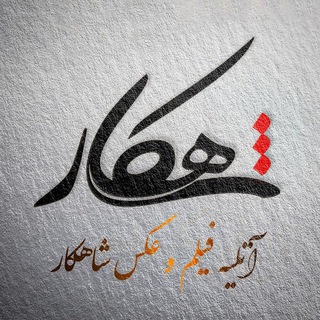 شاهکار
آتلیه فیلم و عکس شاهکار